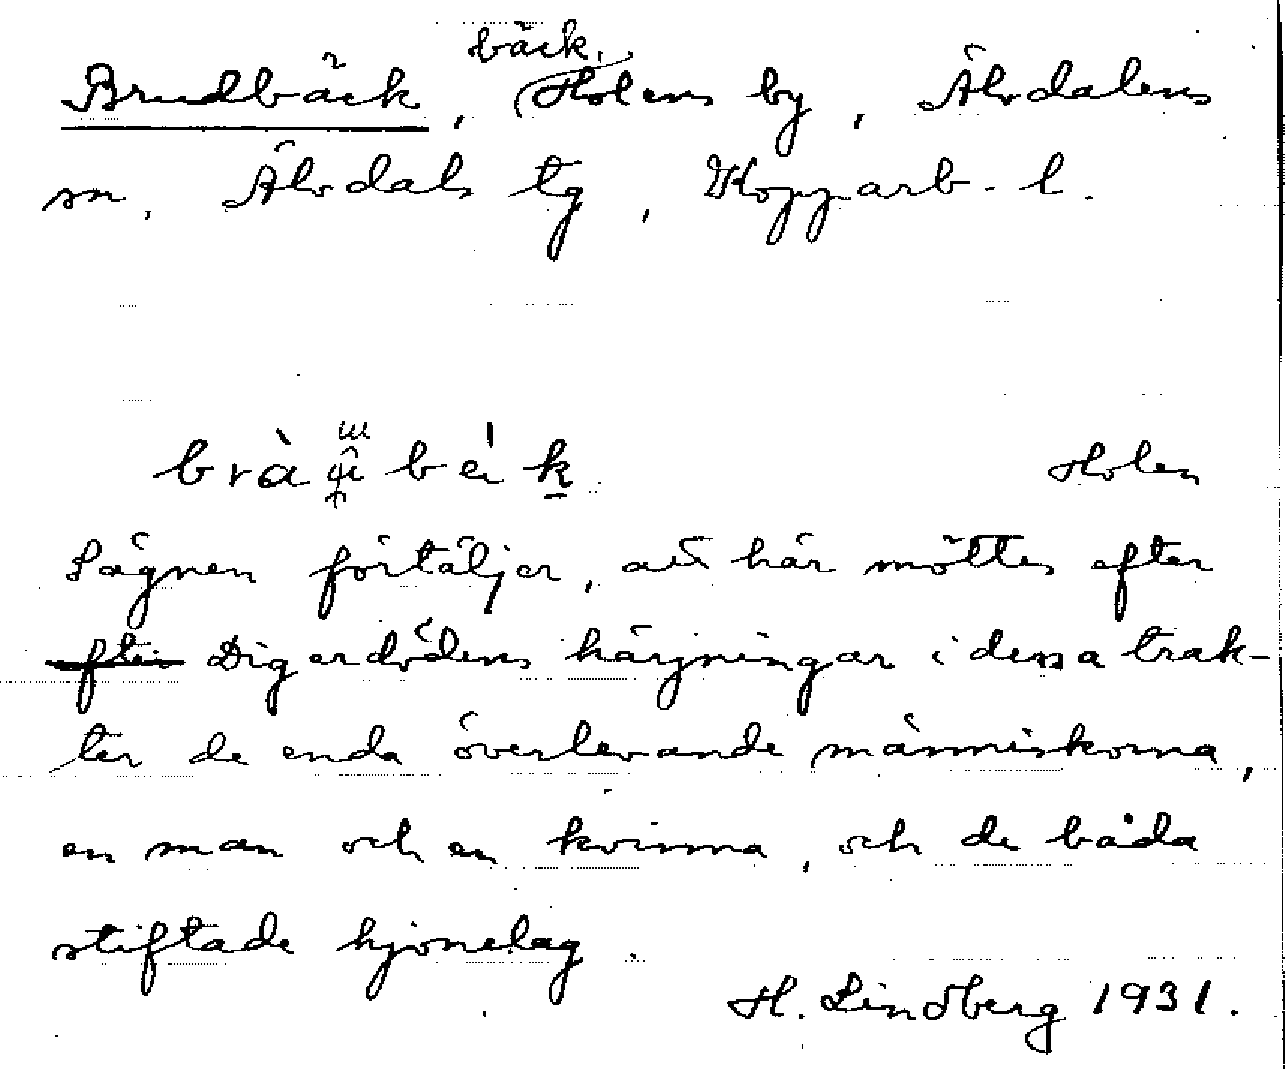 bäck,
Brudbäck, Holens by, Älvdalens
sn, Älvdals tg, Kopparb. l.
Holen
Sägnen förtäljer, att här möttes efter
Digerdödens härjningar i dessa trak-
ter de enda överlevande människorna,
en man och en kvinna, och de båda
stiftade hjonelag.
H. Lindberg 1931.